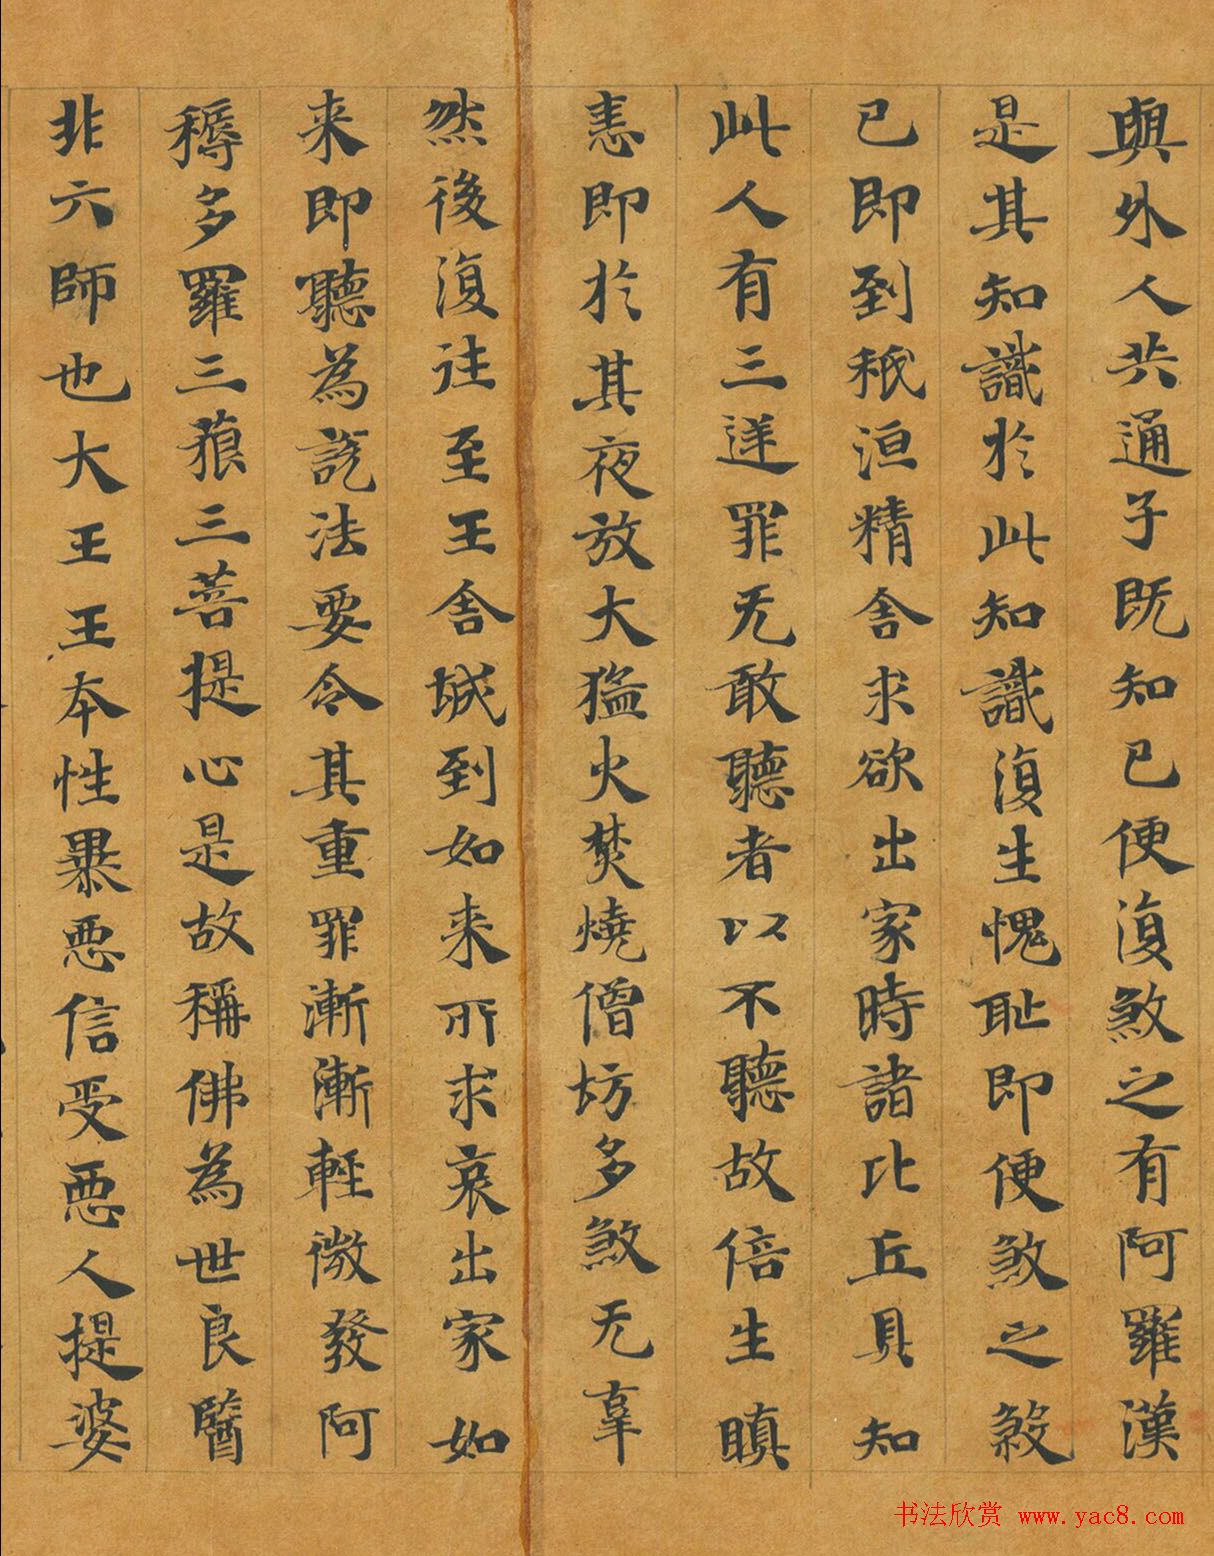 與外人共通子既知已便復煞之有阿羅漢
是其知識於此知識復生愧耻即便煞之煞
已即到秖洹精舍求欲出家時諸比丘具知
此人有三逆罪无敢聽者以不聽故倍生瞋
恚即於其夜放大猛火焚燒僧坊多煞无辜
然後復往至王舍城到如来所求哀出家如
来即聽為說法要令其重罪漸漸輕微發阿
耨多羅三藐三菩提心是故稱佛為世良醫
非六師也大王王本性暴惡信受惡人提婆
书法欣赏 www.yac8.com